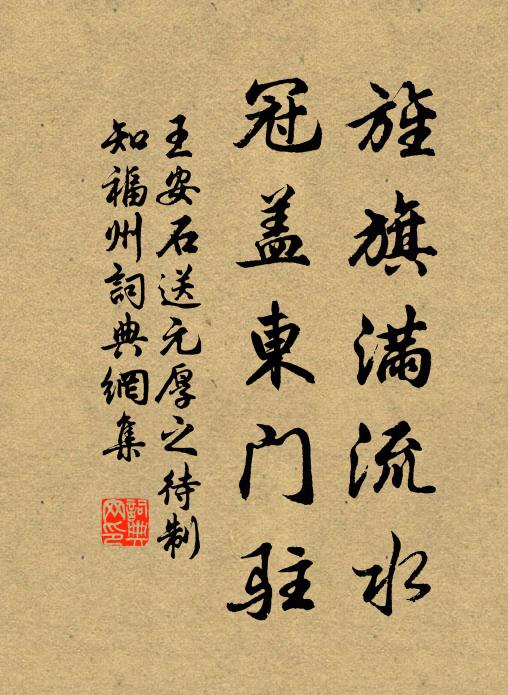 旌旗滿流水
冠盖東门駐
王安石送元厚之待制
知福州詞典網集
詞典网印